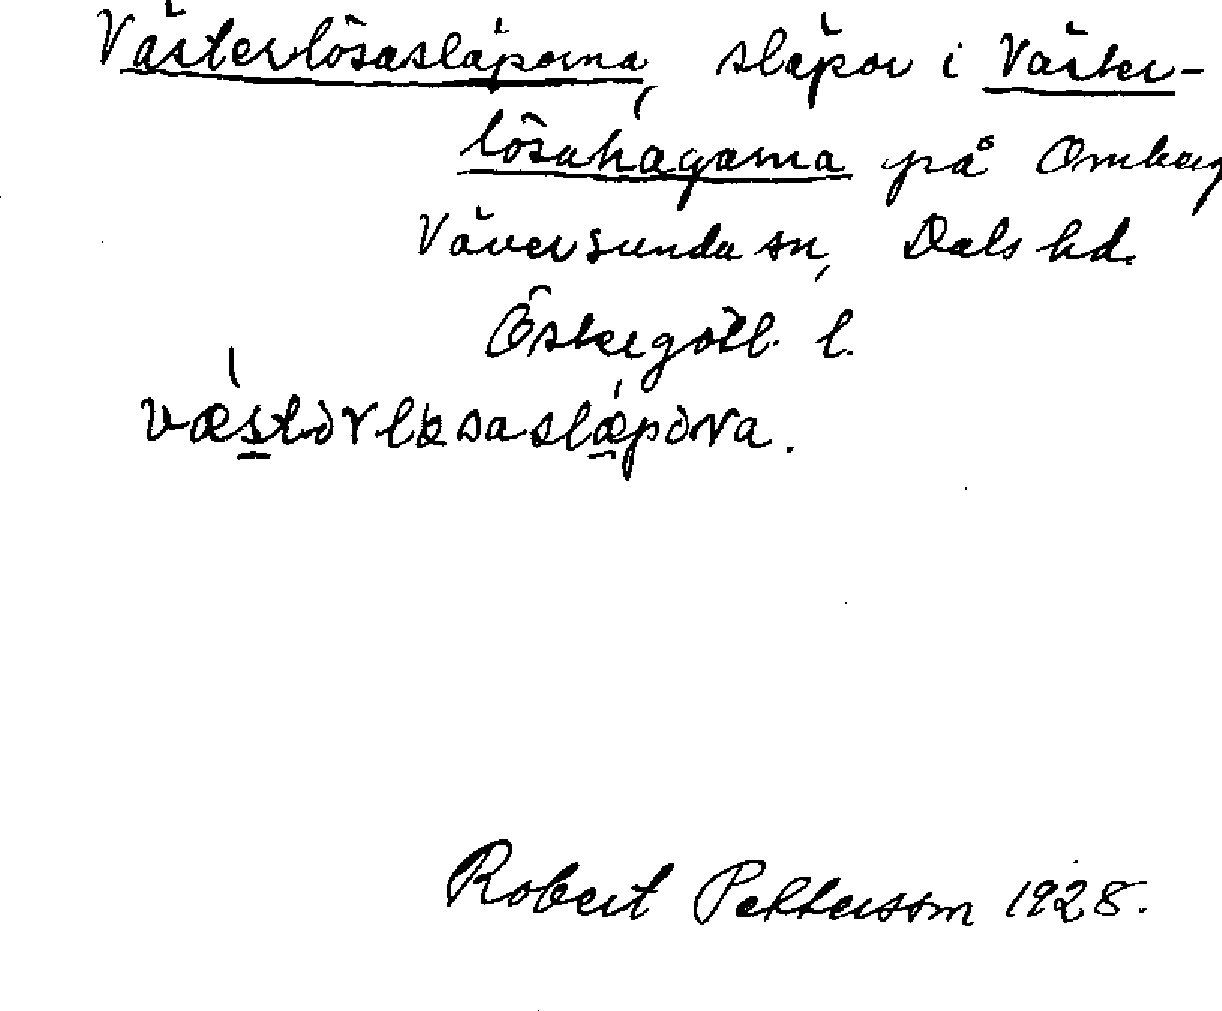 Västerlösasläporna, släpor i Väster-
lösahagarna på Omberg
Väversunda sn, Dals hd.
Östergötl. l.
væstərløsaslæpəra.
Robert Pettersson 1928.